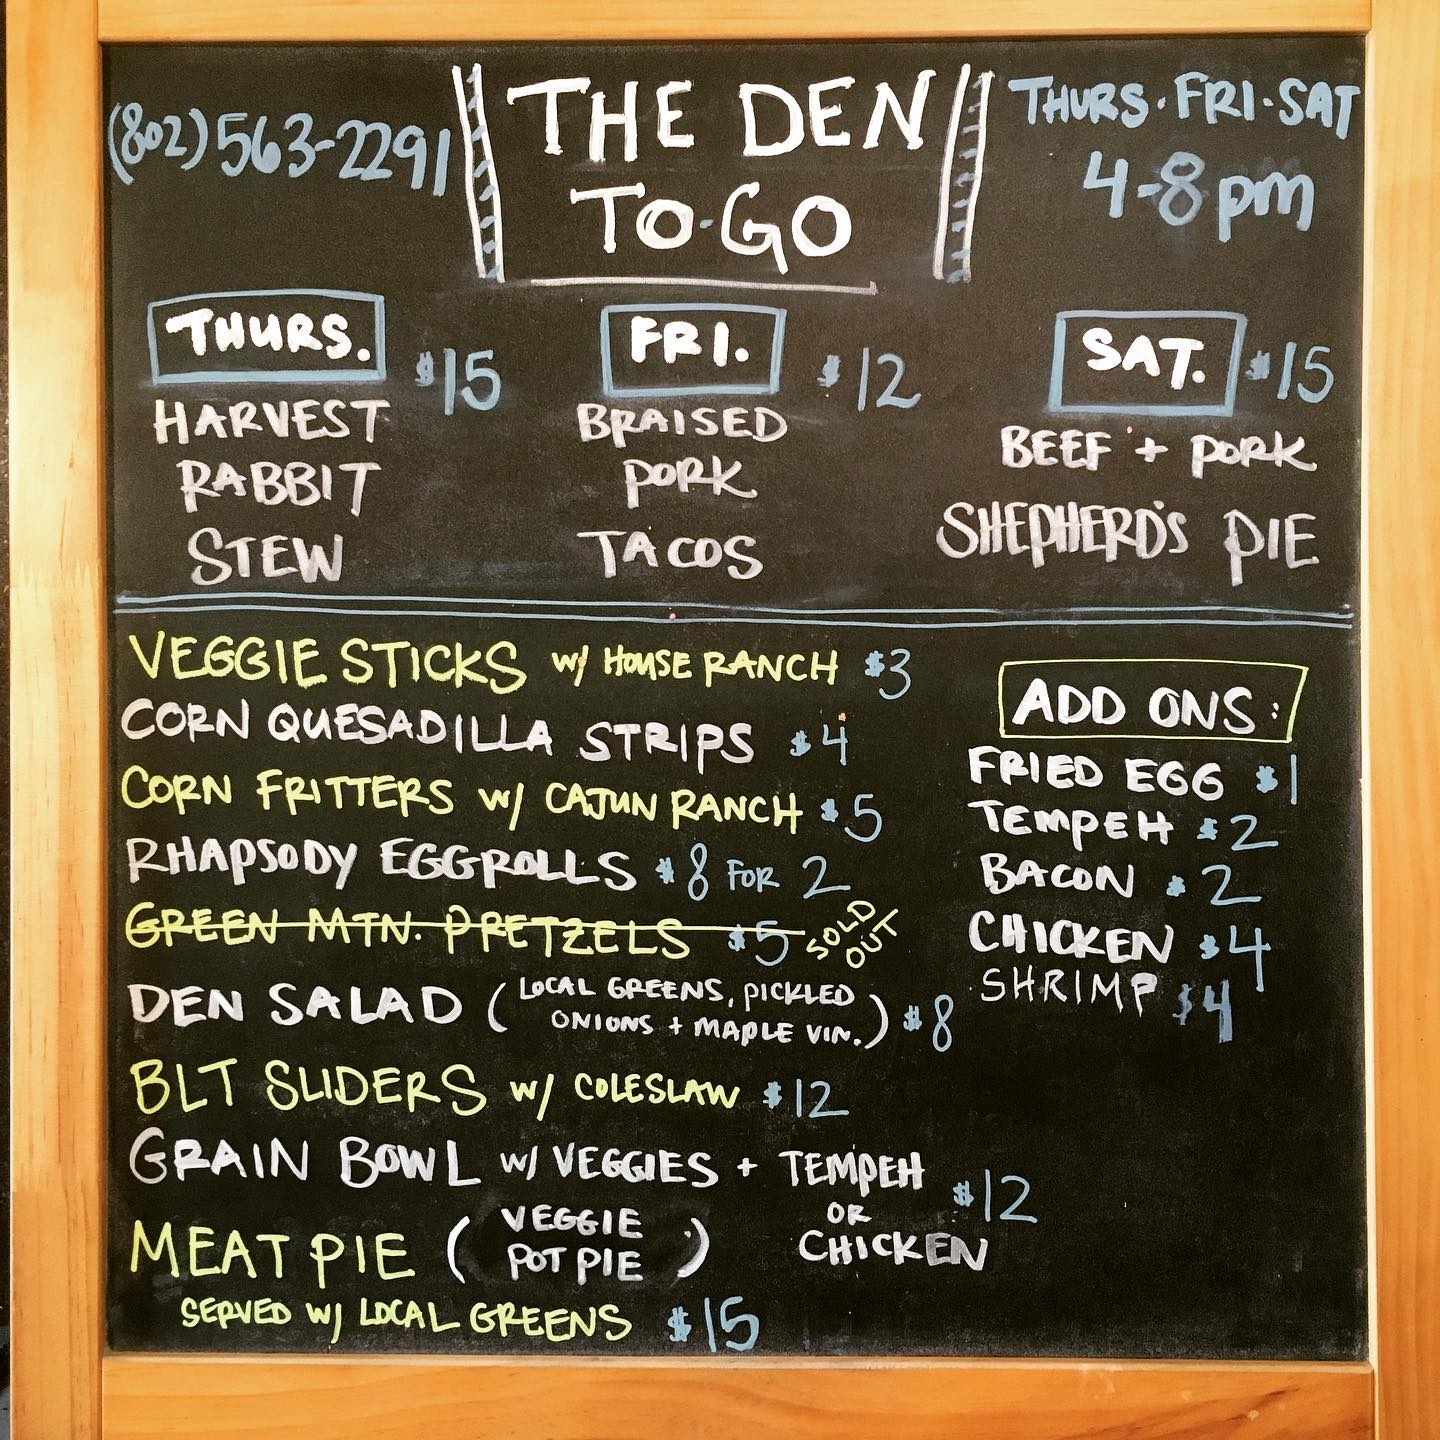 (802) 563-2291
THE DEN
TO-GO
THURS·FRI·SAT
4-8 pm
THURS. $15
HARVEST
RABBIT
STEW
FRI. $12
BRAISED
PORK
TACOS
SAT. $15
BEEF + PORK
SHEPHERD'S PIE
VEGGIE STICKS w/ HOUSE RANCH $3
CORN QUESADILLA STRIPS $4
CORN FRITTERS w/ CAJUN RANCH $5
RHAPSODY EGGROLLS $8 FOR 2
GREEN MTN. PRETZELS $5 SOLD OUT
DEN SALAD (LOCAL GREENS, PICKLED
ONIONS + MAPLE VIN.) $8
BLT SLIDERS w/ COLESLAW $12
GRAIN BOWL w/ VEGGIES + TEMPEH
OR
CHICKEN $12
MEAT PIE (VEGGIE
POT PIE)
SERVED w/ LOCAL GREENS $15
ADD ONS:
FRIED EGG $1
TEMPEH $2
BACON $2
CHICKEN $4
SHRIMP $4